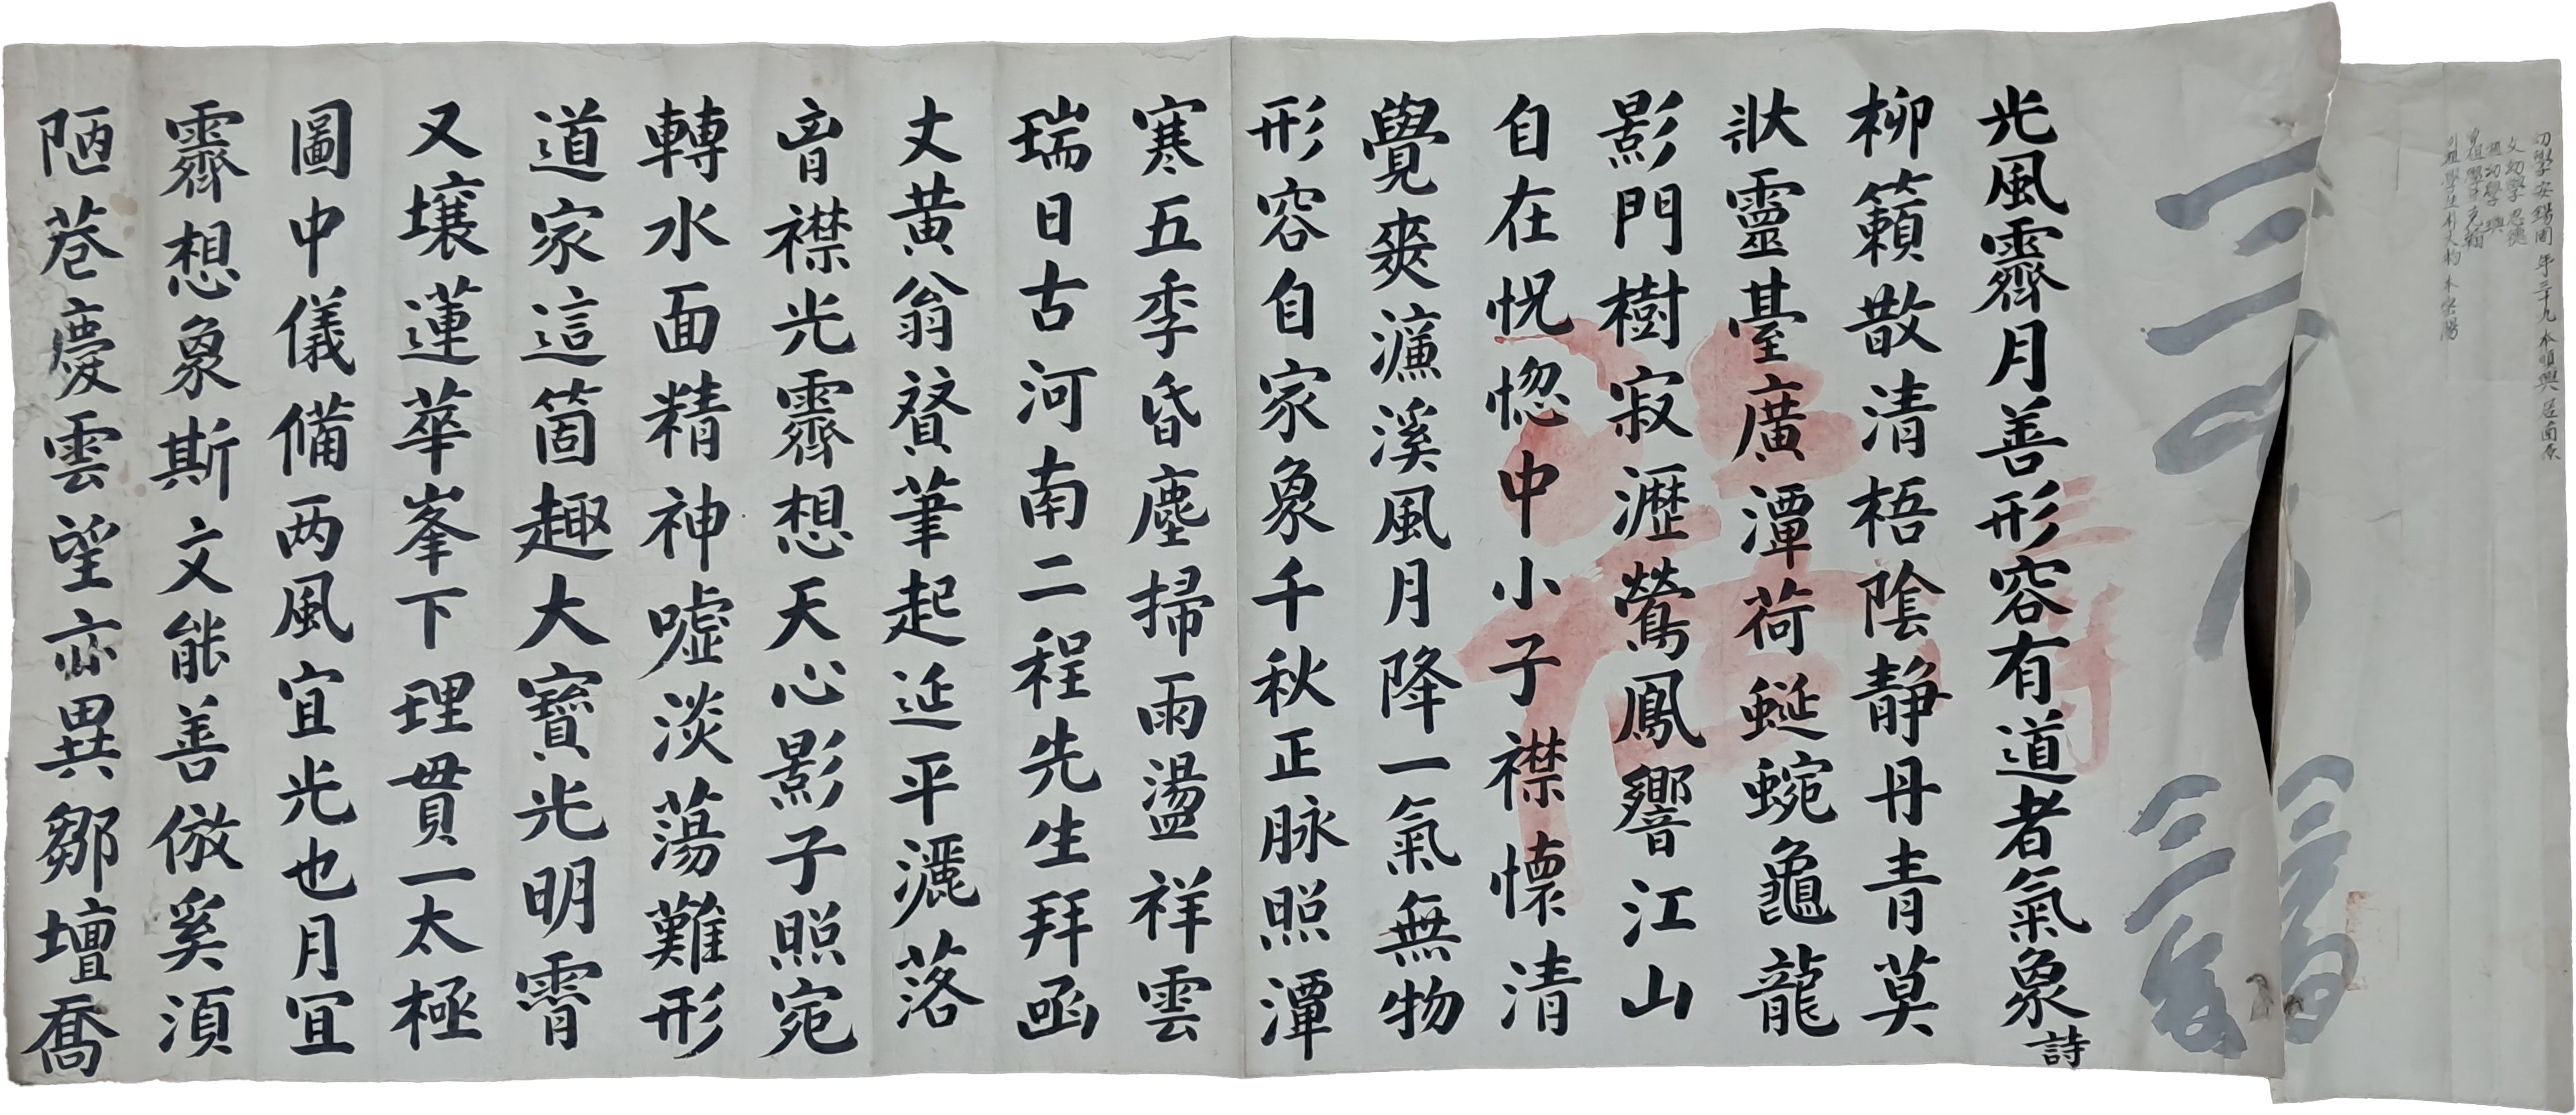 幼學安錫國 年三十九 本順興 居南原
父幼學 思德
祖幼學 興
曾祖學生
外祖學生朴大
光風霽月善形容有道者氣象詩
柳籟散清梧陰靜丹青莫
狀靈臺廣潭荷蜒蜿龜龍
影門樹寂瀝鶯鳳響江山
自在怳惚中小子襟懷清
覺爽濂溪風月降一氣無物
形容自家象千秋正脉照潭
寒五季昏塵掃雨盪祥雲
瑞日古河南二程先生拜函
丈黃翁贇筆起延平灑落
音襟光霽想天心影子照宛
轉水面精神噓淡蕩難形
道家這箇趣大寶光明霄
又壤蓮華峯下理貫一太極
圖中儀備两風宜光也月宜
霽想象斯文能善倣奚須
陋巷慶雲望亦異鄒壇喬
三下
三